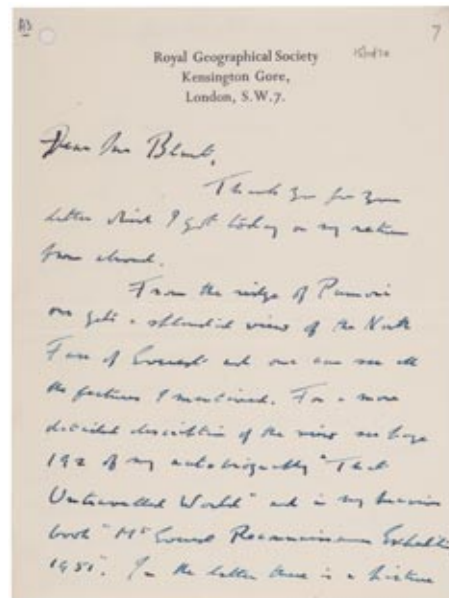 A3
7
Royal Geographical Society
Kensington Gore,
London, S.W.7.
Dear Mr Blunt,
Thank you for your
letter which I got today on my return
from abroad.
From the ridge of Pumori
one gets a splendid view of the North
Face of Everest and one can see all
the features I mentioned. For a more
detailed description of the view see page
192 of my autobiography "That
Untravelled World" and in my
book "Mt Everest Reconnaissance Expedition
1951". In the latter there is a picture